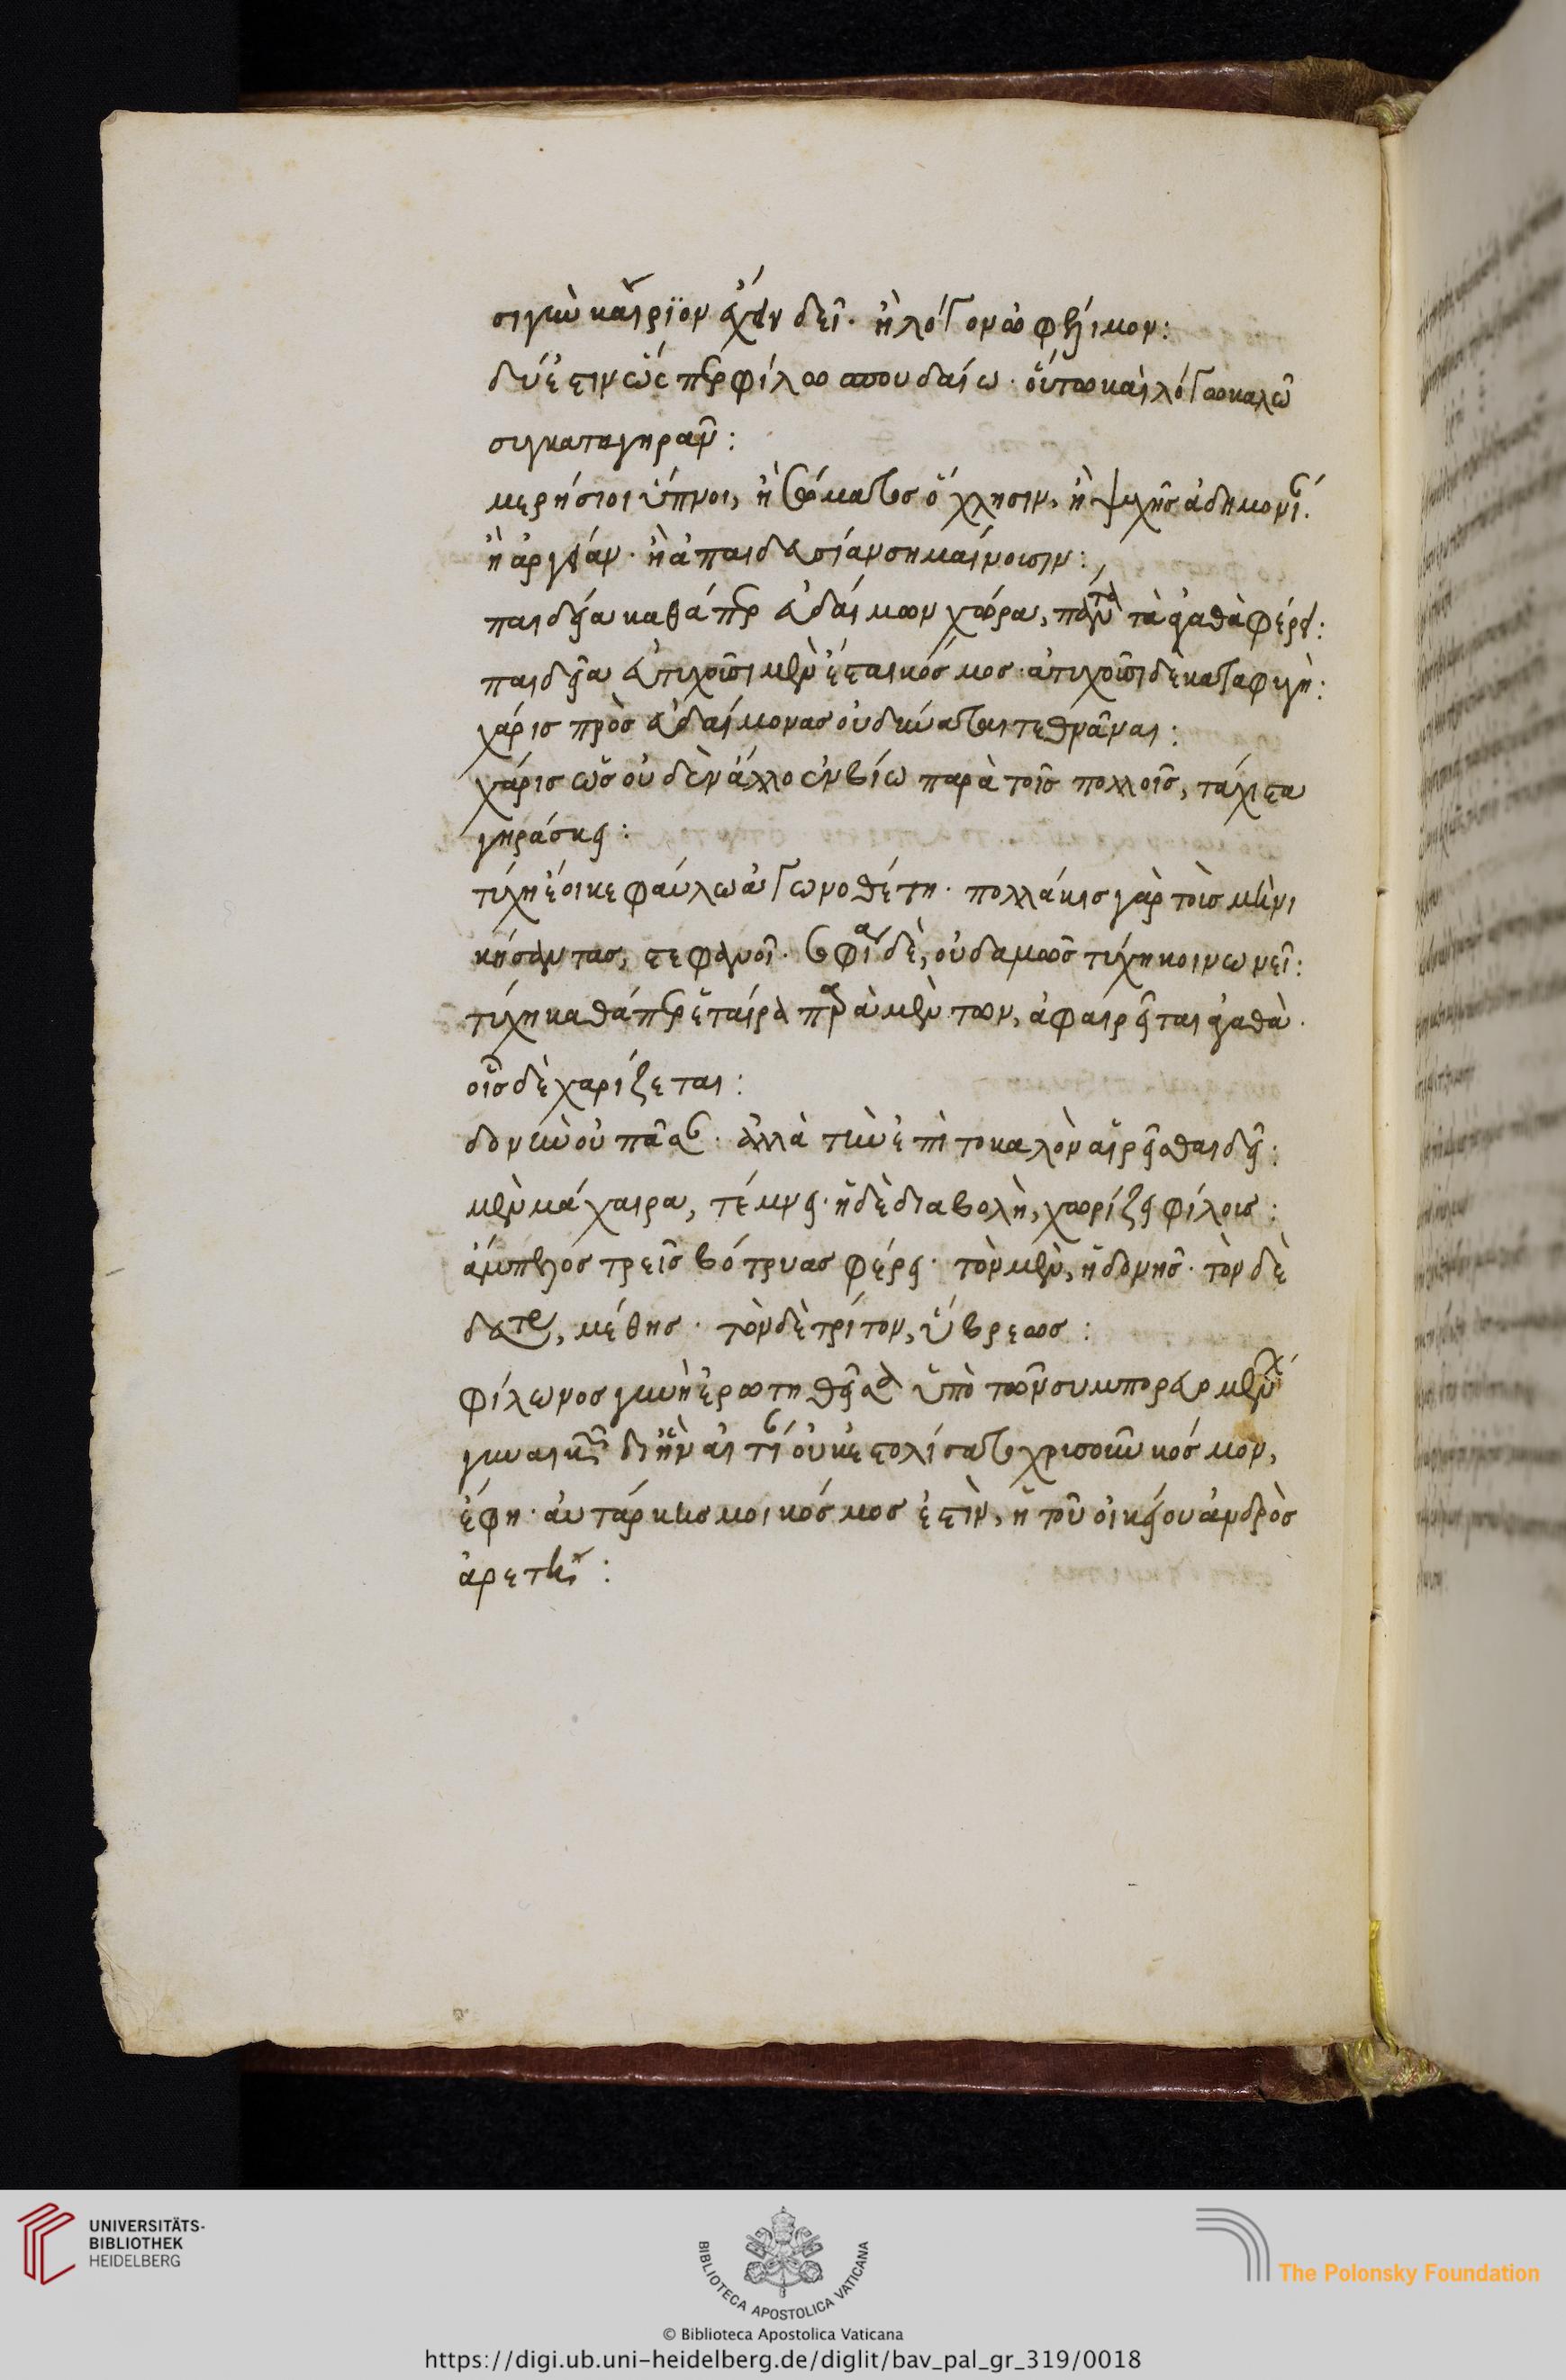 σιγὴν καίριον ἔχειν δεῖ· ἢ λόγον ὠφέλιμον:
δύεστιν ὥς περ φίλω σπουδαίω· οὕτω καὶ λόγω καλῶ
συγκαταγηρᾶν:
μερήσιοι ὕπνοι, ἢ σώματος ὄχλησιν, ἢ ψυχῆς ἀδημονί.
ἢ ἀργείαν· ἢ ἀπαιδευσίαν σημαίνοισιν:,
παιδεία καθάπερ εὐδαίμων χώρα, πάντα τὰ ἀγαθὰ φέρει:
παιδεῖα εὐτυχοῦσι μὲν ἐστι κόσμος· ἀτυχοῦσι δὲ καταφυγὴ:
χάρις πρὸς εὐδαίμονας οὐ δύναται τεθνᾶναι:
χάρις ὡς οὐδὲν ἄλλο ἐν βίω παρὰ τοῖς πολλοῖς, τάχιστα
γηράσκει:
τύχη ἔοικε φαύλω ἀγωνοθέτη· πολλάκις γὰρ τοὶς μὴ νι
κήσαντας, στεφανοῖ· σοφία δὲ, οὐδαμῶς τύχη κοινωνεῖ:
τύχη καθάπερ ἑταίρα παρὰ μὲν των, ἀφαιρεῖται ἀγαθὰ·
οἷς δὲ χαρίζεται:
δονὴν οὐ πᾶσαν· ἀλλὰ τὴν ἐπὶ το καλὸν αἱρεῖσθαι δεῖ:
μὲν μάχαιρα, τέμνει· ἡ δὲ διαβολὴ, χωρίζει φίλοις:
ἄμπελος τρεῖς βότρυας φέρει· τὸν μὲν, ἡδονῆς· τὸν δὲ
δεύτερον, μέθης· τὸν δὲ τρίτον, ὕβρεως:
φίλωνος γυνὴ ἐρωτηθεῖσα ὑπὸ τῶν συμπορευομένων
γυναικῶν διὴν αἰτίαν οὐκ ἐστολίσατο χρισοῦν κόσμον,
ἔφη· αὐτάρκης μοι κόσμος ἐστὶν, ἡ τοῦ οἰκείου ἀνδρὸς
ἀρετή:
UNIVERSITÄTS-
BIBLIOTHEK
HEIDELBERG
BIBLIOTECA APOSTOLICA VATICANA
The Polonsky Foundation
© Biblioteca Apostolica Vaticana
https://digi.ub.uni-heidelberg.de/diglit/bav_pal_gr_319/0018